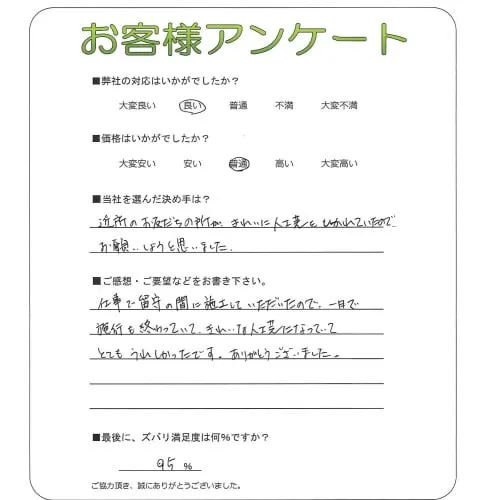 お客様アンケート
■弊社の対応はいかがでしたか？
大変良い 良い 普通 不満 大変不満
■価格はいかがでしたか？
大変安い 安い 普通 高い 大変高い
■当社を選んだ決め手は？
近所のお友だちの所が、きれいに人工芝をひかれていたので
お願いしようと思いました。
■ご感想・ご要望などをお書き下さい。
仕事で留守の間に施工していただいたので、一日で
施行も終わっていて、きれいな人工芝になっていて
とてもうれしかったです。ありがとうございました。
■最後に、ズバリ満足度は何%ですか？
95 %
ご協力頂き、誠にありがとうございました。